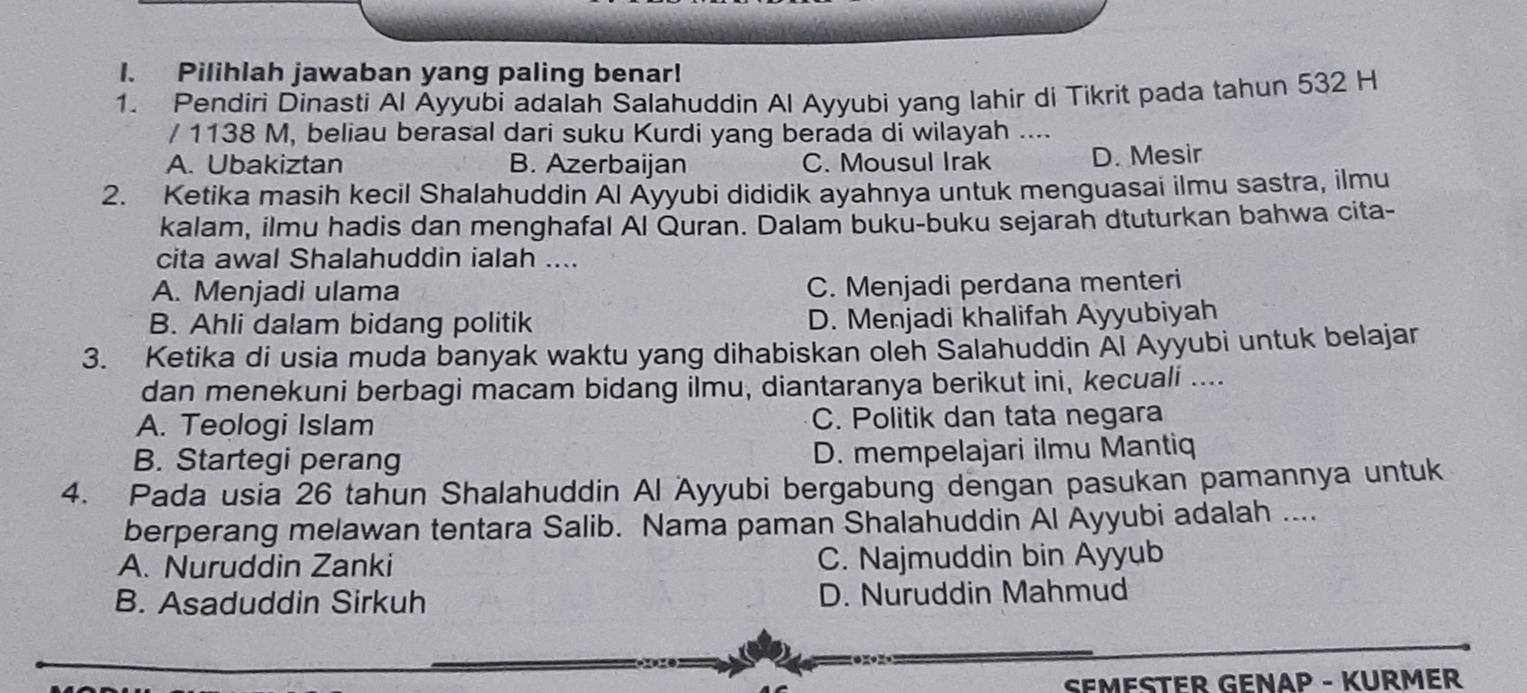 I. Pilihlah jawaban yang paling benar!
1. Pendiri Dinasti Al Ayyubi adalah Salahuddin Al Ayyubi yang lahir di Tikrit pada tahun 532 H
/ 1138 M, beliau berasal dari suku Kurdi yang berada di wilayah ....
A. Ubakiztan B. Azerbaijan C. Mousul Irak D. Mesir
2. Ketika masih kecil Shalahuddin Al Ayyubi dididik ayahnya untuk menguasai ilmu sastra, ilmu
kalam, ilmu hadis dan menghafal Al Quran. Dalam buku-buku sejarah dtuturkan bahwa cita-
cita awal Shalahuddin ialah ....
A. Menjadi ulama C. Menjadi perdana menteri
B. Ahli dalam bidang politik D. Menjadi khalifah Ayyubiyah
3. Ketika di usia muda banyak waktu yang dihabiskan oleh Salahuddin Al Ayyubi untuk belajar
dan menekuni berbagi macam bidang ilmu, diantaranya berikut ini, kecuali ....
A. Teologi Islam C. Politik dan tata negara
B. Startegi perang D. mempelajari ilmu Mantiq
4. Pada usia 26 tahun Shalahuddin Al Ayyubi bergabung dengan pasukan pamannya untuk
berperang melawan tentara Salib. Nama paman Shalahuddin Al Ayyubi adalah ....
A. Nuruddin Zanki C. Najmuddin bin Ayyub
B. Asaduddin Sirkuh D. Nuruddin Mahmud
SEMESTER GENAP - KURMER